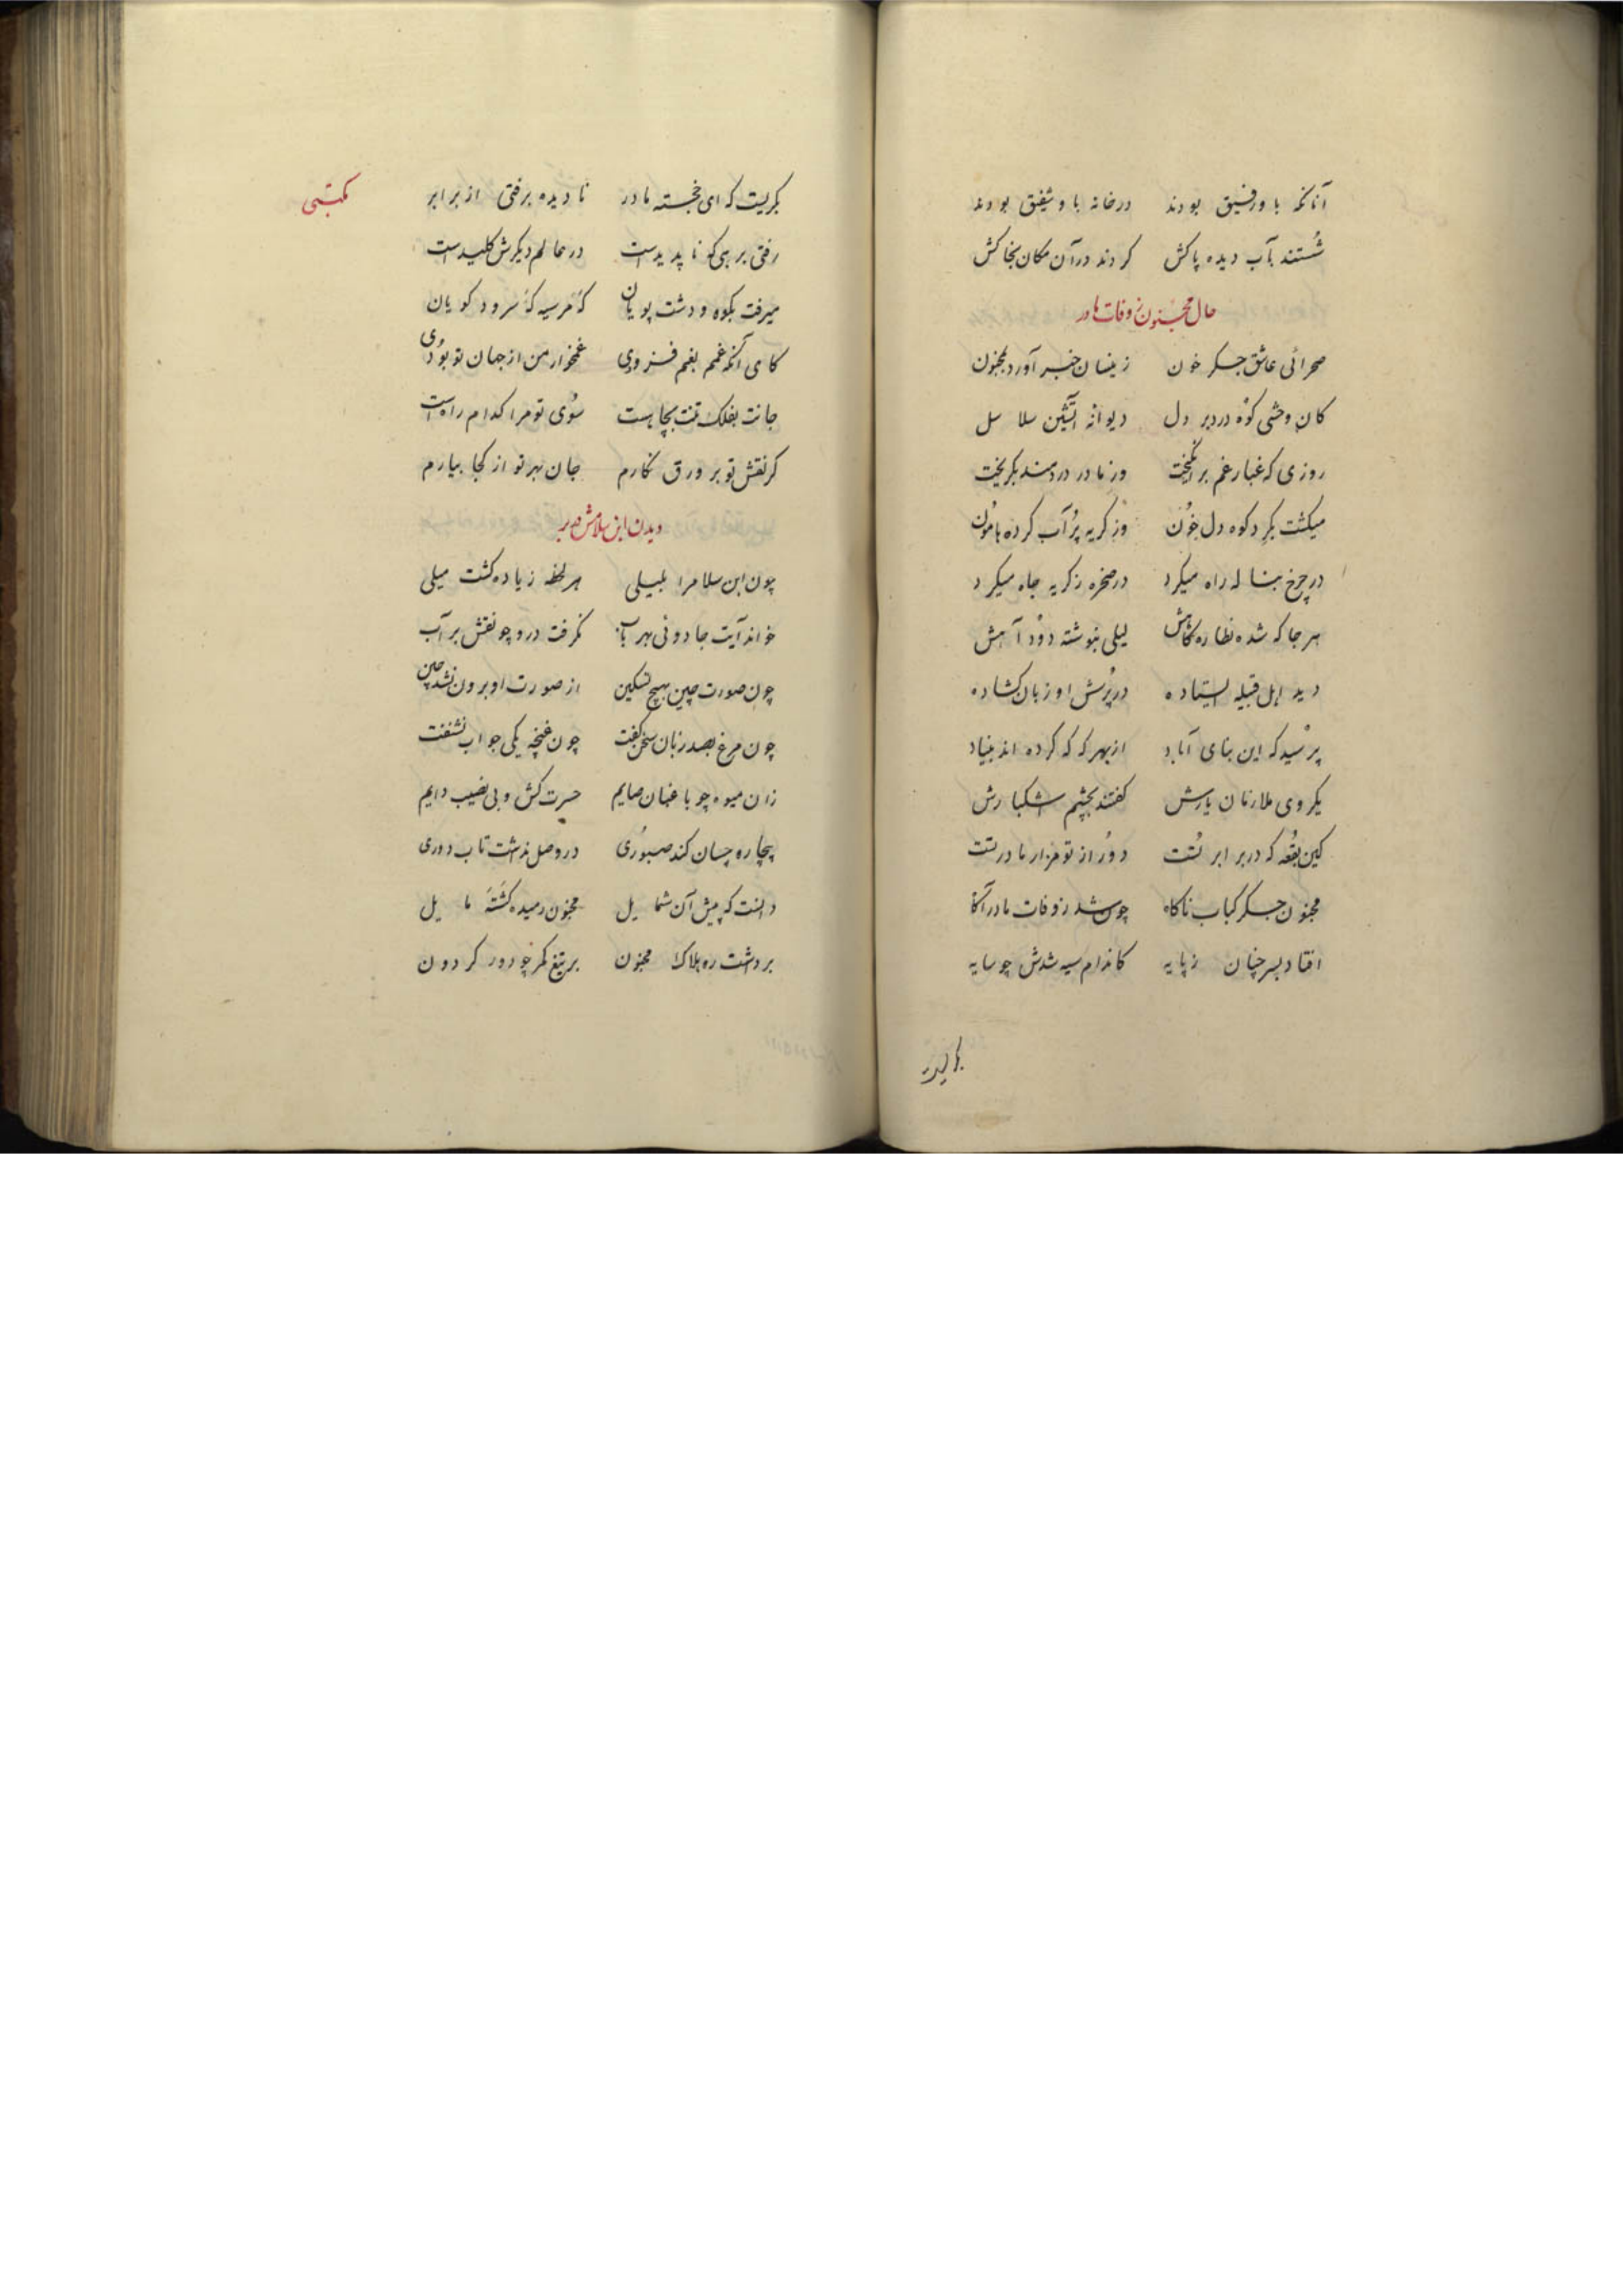 آنانکه باو رفیق بودند درخانه باو شفیق بودند
شُستند بآب دیده پاکش کردند درآن مکان بخاکش
حال مجنون زوفات مادر
صحرائی عاشق جکر خون زینسان خبر آورد بمجنون
کان وحشی کوه درد بر دل دیوانهٔ آتشین سلاسل
روزی که غبار غم برانکیخت وز مادر دردمند بکریخت
میکشت بکرد کوه دل خون وز کریه پُر آب کرده هامون
در چرخ بناله راه میکرد در صخره زکریه چاه میکرد
هرجا که شده نظاره کاهش لیلی بنوشته دود آهش
دید اهل قبیله ایستاده در پُرسش او زبان کشاده
پرسید که این بنای آباد از بهر که که کرده اند بنیاد
یکروی ملازمان یارش کفتند بچشم اشکبارش
کین بقعه که در برابر تُست دُور از تو مزار مادر تست
مجنون جکر کباب ناکاه چون شد زوفات مادر آکاه
افتاد بسر چنان زپایه کاندام سیه شدش چو سایه
بکریست که ای خجسته مادر نادیده برفتی از برابر
مکتبی
رفتی بر هی کو ناپدیدست در عالم دیکرش کلیدست
میرفت بکوه و دشت پویان که مرسیه که سرود کویان
کای آنکه غمم بغم فزودی غمخوار من از جهان تو بودی
جانت بفلک تنت بچاهست سوی تو مرا کدام راهست
کر نقش تو بر ورق نکارم جان بهر تو از کجا بیارم
دیدن ابن سلامش
چون ابن سلام را بلیلی هر لحظه زیاده کشت میلی
خواند آیت جادوئی بهر باب نکرفت درو چو نقش بر آب
چون صورت چین بهیچ تسکین از صورت او برون نشد چین
چون مرغ بصد زبان سخن کفت چون غنچه یکی جواب نشنفت
زان میوه چو باغبان صایم حسرت کش و بی نصیب دایم
بیچاره چسان کند صبوری در وصل نداشت تاب دوری
دانست که پیش آن شمایل مجنون رمیده کشته مایل
برداشت ره هلاک مجنون بر تیغ کمر چو دور کردون